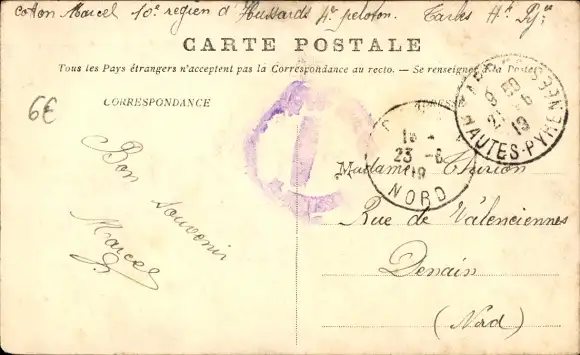 Cotton Marcel 10e region d'Hussards 4e peloton. Tarbes Hes Py
CARTE POSTALE
Tous les Pays étrangers n'acceptent pas la Correspondance au recto. — Se renseigner à la Poste
6€
CORRESPONDANCE
ADRESSE
TARBES
HAUTES-PYRENEES
23 -6
19
NORD
T
Bon souvenir
Marcel
Madame Thirion
Rue de Valenciennes
Denain
(Nord)